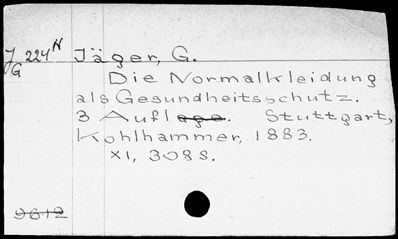 J 224 N
G
Jäger, G.
Die Normalkleidung
als Gesundheitsschutz.
3 Auflage. Stuttgart,
Kohlhammer, 1883.
XI, 308 S.
9612